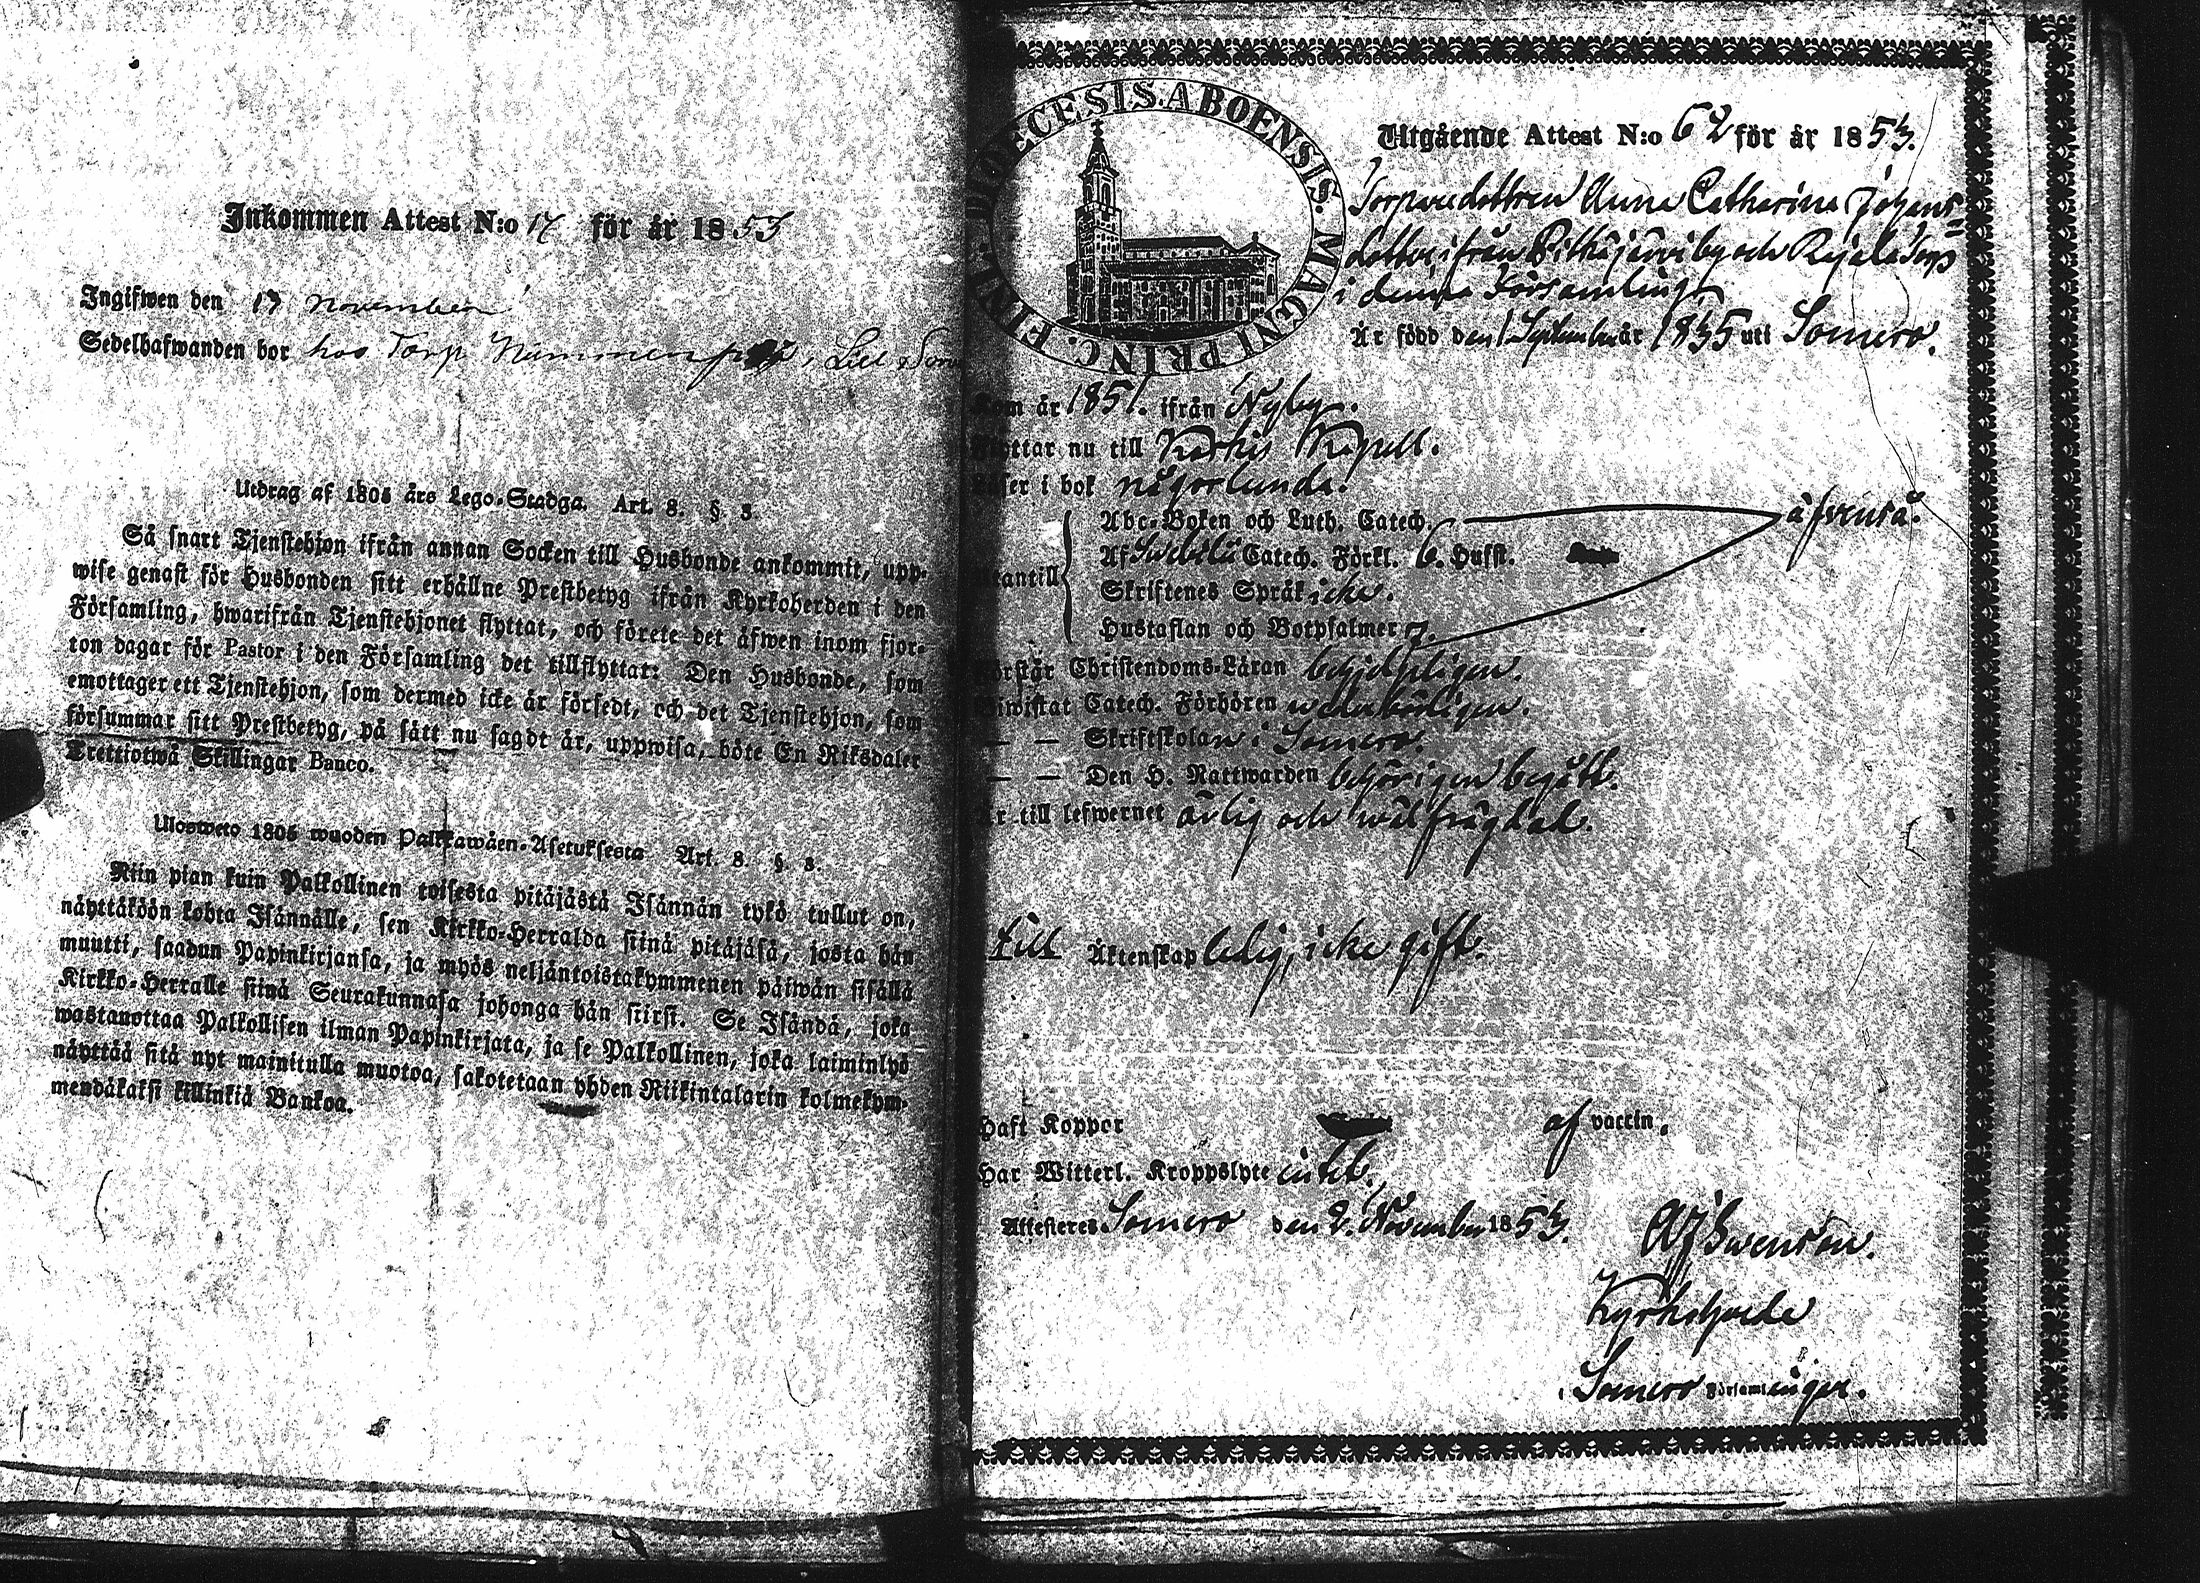 Inkommen Attest N:o 17 för år 1853
Ingifwen den 13 November
Sedelhafwanden bor hos Torp Nummenpää, Lill Som
Utdrag af 1805 års Lego-Stadga. Art. 8. §. 3.
Så snart Tjenstehjon ifrån annan Socken till Husbonde ankommit, upp-
wise genast för Husbonden sitt erhållne Prestbetyg ifrån Kyrkoherden i den
Församling, hwarifrån Tjenstehjonet flyttat, och förete det äfwen inom fjor-
ton dagar för Pastor i den Församling det tillflyttat: Den Husbonde, som
emottager ett Tjenstehjon, som dermed icke är försedt, och det Tjenstehjon, som
försummar sitt Prestbetyg, på sätt nu sagdt är, uppwisa, böte En Riksdaler
Trettiotwå Skillingar Banco.
Ulosweto 1805 wuoden Palkkawäen-Asetuksesta Art. 8. §. 3.
Niin pian kuin Palkollinen toisesta pitäjästä Isännän tykö tullut on,
näyttäköön kohta Isännälle, sen Kirkko-Herralda siinä pitäjäsä, josta hän
muutti, saadun Papinkirjansa, ja myös neljäntoistakymmenen päiwän sisällä
Kirkko-Herralle siinä Seurakunnasa johonga hän siirsi. Se Isändä, joka
wastanottaa Palkollisen ilman Papinkirjata, ja se Palkollinen, joka laiminlyö
näyttää sitä nyt mainitulla muotoa, sakotetaan yhden Riikintalarin kolmekym-
mendäkaksi killinkiä Bankoa.
DIOECESIS. ABOENSIS. MAGNI PRINC. FINL.
Utgående Attest N:o 62 för år 1853.
Torparedottren Anna Catharina Johans=
dotter ifrån Pitkäjärvi by och Rajala Torp
i denna Församling,
Är född den 1 September år 1835 uti Somero.
Kom år 1851. ifrån Nyby.
Flyttar nu till Karkis Kapell.
Läser i bok någorlunda.
Abc-Boken och Luth. Catech.
äfvenså.
Utantill
Af Svebelii Catech. Förkl. 6. Hufst.
Skriftenes Språk icke.
Hustaflan och Botpsalmer 7.
Förstår Christendoms-Läran begripligen.
Biwistat Catech. Förhören wederbörligen.
— — Skriftskolan i Somero.
— — Den H. Nattwarden behörigen begått.
Är till lefwernet ärlig och wälfrägdad.
till Äktenskap ledig, icke gift.
Haft Koppor af vaccin.
Har Witterl. Kroppslyte intet.
Attesteres Somero den 2. November 1853.
A J Swenson.
Kyrkoherde
i Somero Församlingar.